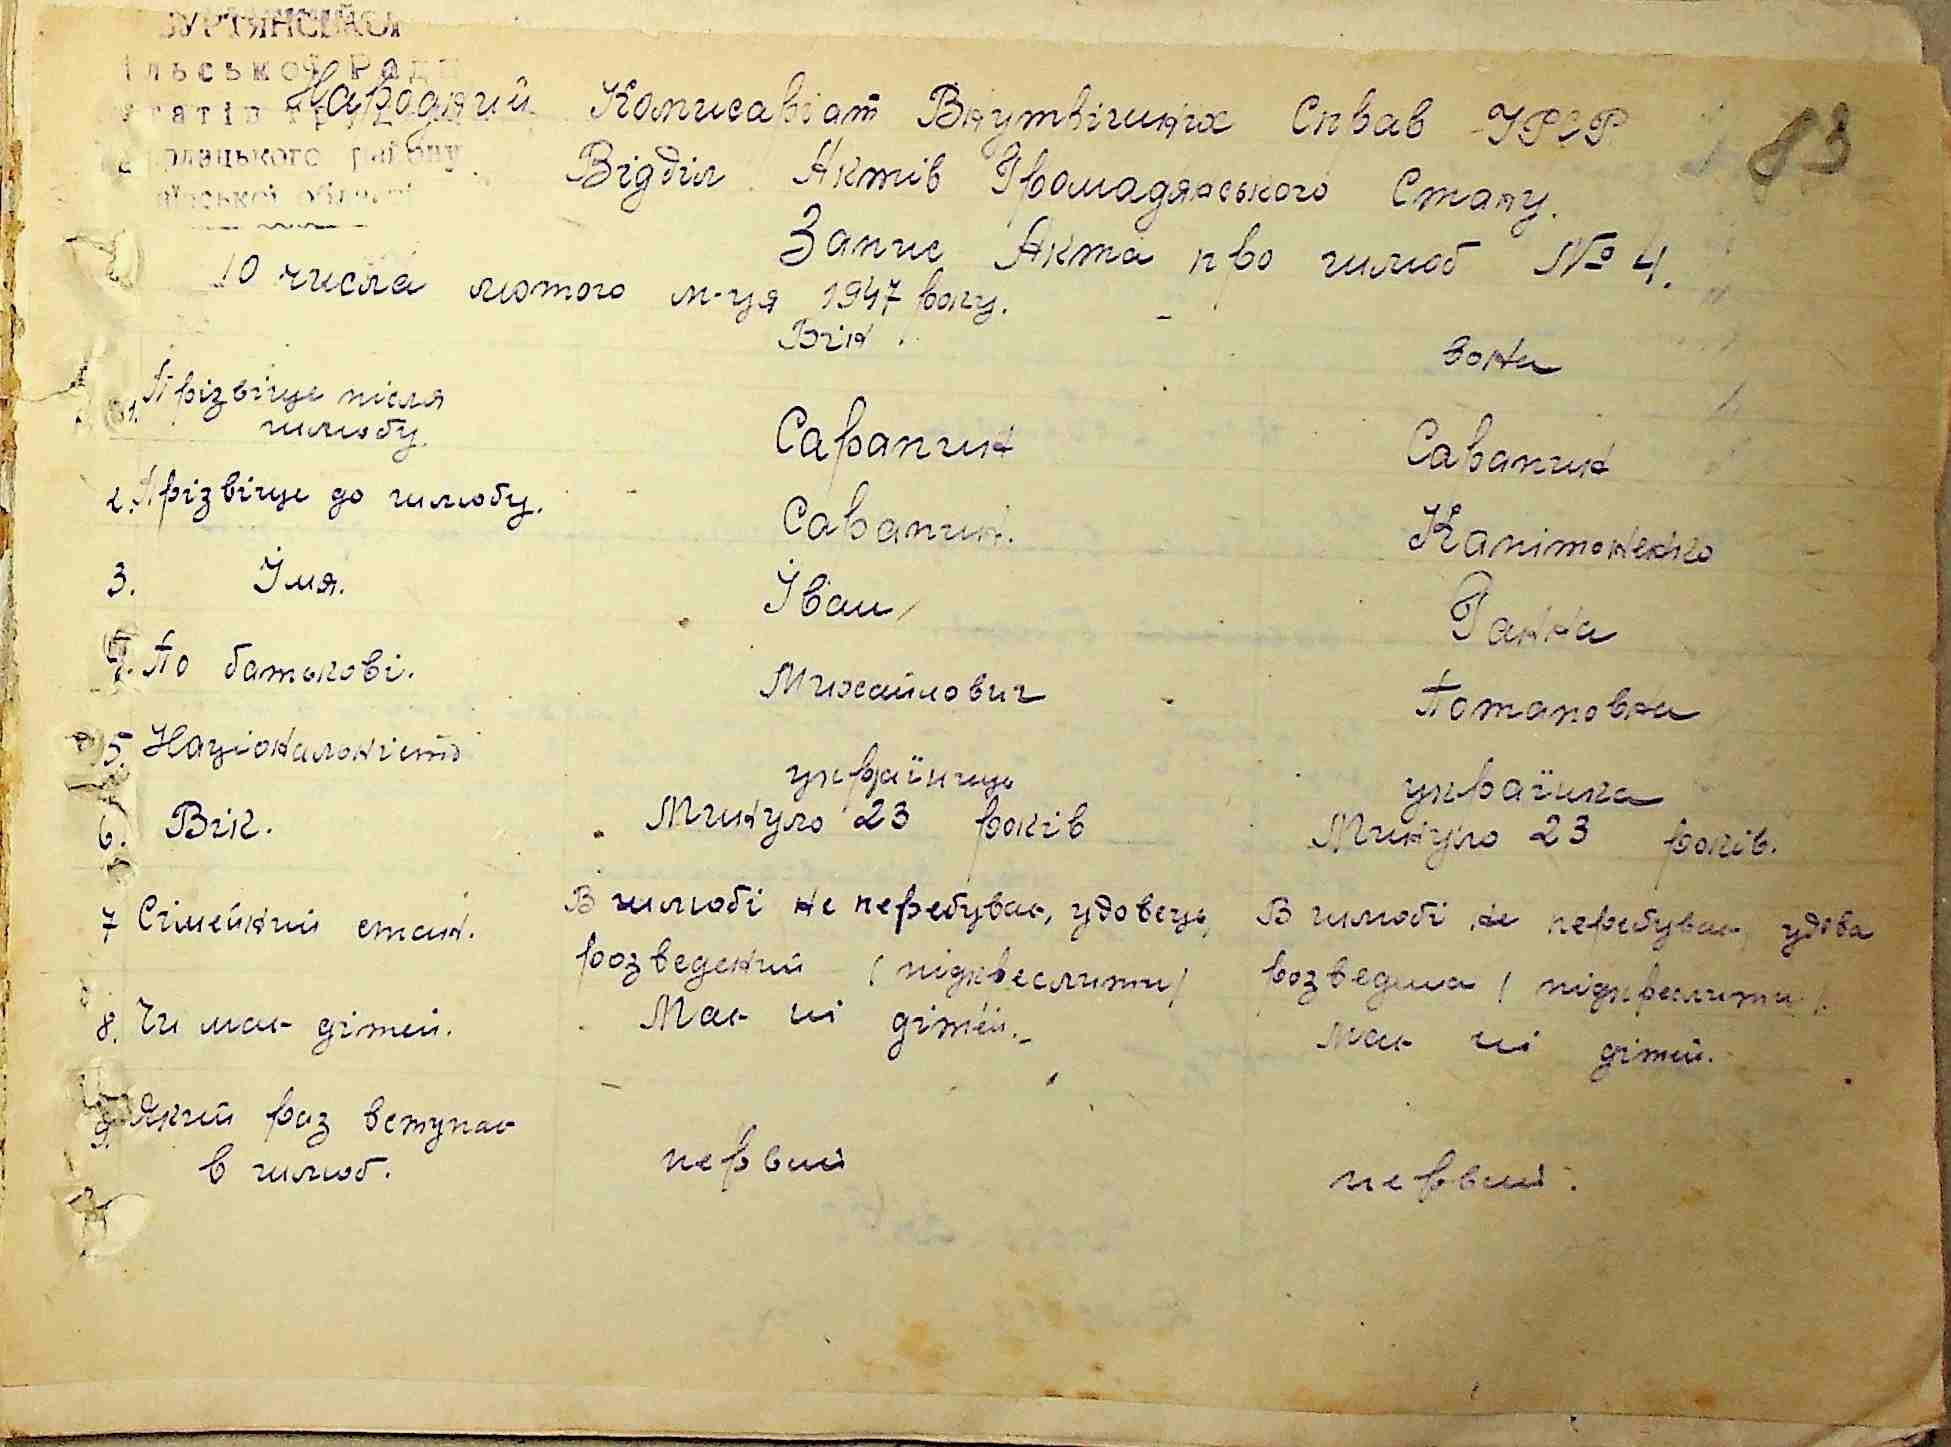 БУРТЯНСЬКОЇ
ільської Ради
району
області
83
Народний Комисаріат Внутрішніх Справ УРСР
Відділ Актів Громадянського Стану.
Запис Акта про шлюб № 4.
10 числа лютого м-ця 1947 року.
Він. вона
1. Прізвіще після Сарапин Сарапин
шлюбу.
2. Прізвіще до шлюбу. Сарапин. Капітоненко
3. Імя. Іван Ганна
4. По батькові. Михайлович Потаповна
5. Національність українець українка
6. Вік. Минуло 23 років Минуло 23 років.
7 Сімейний стан. В шлюбі не перебуває, удовець, В шлюбі не перебуває, удова
розведений (підкреслити) розведена (підкреслити).
8. Чи має дітей. Має ні дітей. Має ні дітей.
9. Який раз вступає первий первий.
в шлюб.